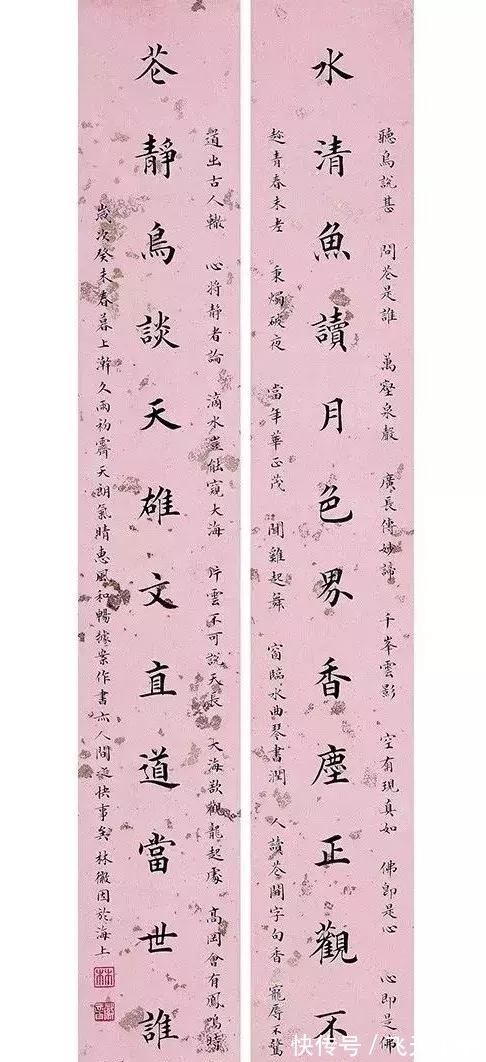 聽鳥說甚 問花是誰 萬壑泉聲 廣長傳妙諦 千峯雲影 空有現真如 佛即是心 心即是佛
水清魚讀月色界香塵正觀不
趁青春未老 秉燭破夜 當年華正茂 聞雞起舞 窗臨水曲琴書潤 人讀花間字句香 寵辱不驚
道出古人轍 心将静者論 滴水豈能窺大海 片雲不可說天長 大海欲觀龍起處 高岡會有鳳鳴時
花靜鳥談天雄文直道當世誰
歲次癸未春暮上澣久雨初霽天朗氣晴惠風和暢據案作書亦人間快事矣 林徽因於海上
快传号/飞